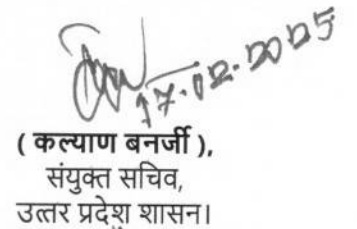 17.02.2025
( कल्याण बनर्जी ),
संयुक्त सचिव,
उत्तर प्रदेश शासन।